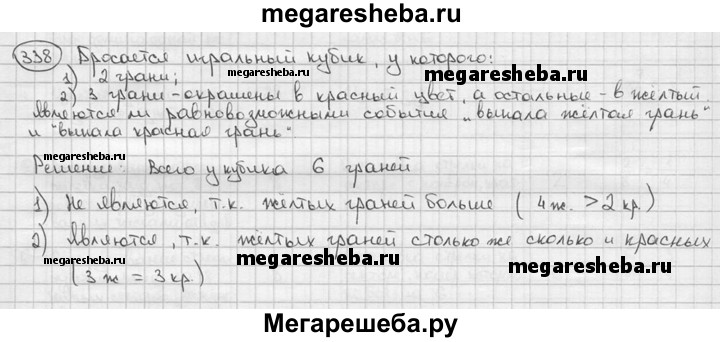 megaresheba.ru
338 Бросается игральный кубик, у которого:
1) 2 грани; megaresheba.ru megaresheba.ru
2) 3 грани - окрашены в красный цвет, а остальные - в жёлтый
Являются ли равновозможными события „выпала жёлтая грань"
и "выпала красная грань" megaresheba.ru megaresheba.ru
Решение: Всего у кубика 6 граней
megaresheba.ru megaresheba.ru
1) Не являются, т.к. жёлтых граней больше (4ж. > 2кр.)
2) Являются, т.к. жёлтых граней столько же сколько и красных
megaresheba.ru megaresheba.ru megaresheba.ru
(3ж = 3кр.)
Мегарешеба.ру